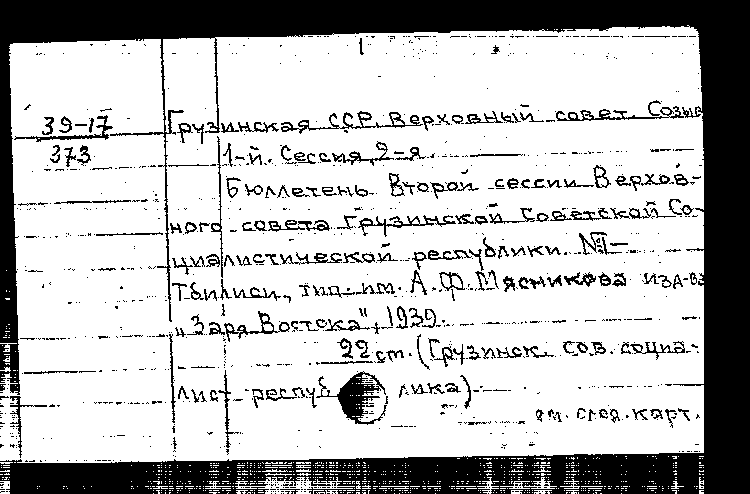 39-17
373
Грузинская ССР. Верховный совет. Созыв
1-й. Сессия, 2-я.
Бюллетень Второй сессии Верхов-
ного совета Грузинской Советской Со-
циалистической республики. №1-
Тбилиси, тип. им. А.Ф. Мясникова изд-ва
„Заря Востока", 1939.
22 ст. (Грузинск. сов. социа-
лист. республика).
см. след. карт.